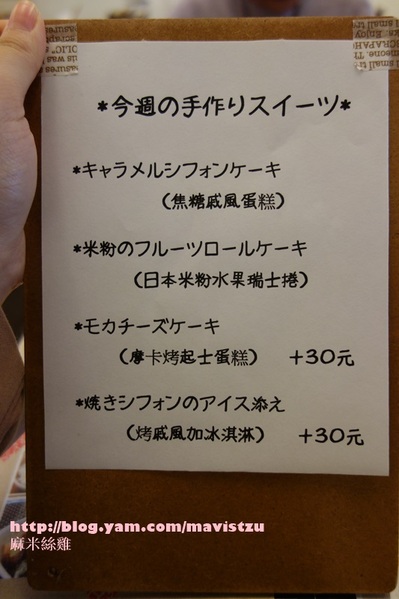 *今週の手作りスイーツ*
*キャラメルシフォンケーキ
(焦糖戚風蛋糕)
*米粉のフルーツロールケーキ
(日本米粉水果瑞士捲)
*モカチーズケーキ
(摩卡烤起士蛋糕) +30元
*焼きシフォンのアイス添え
(烤戚風加冰淇淋) +30元
http://blog.yam.com/mavistzu
麻米絲雞